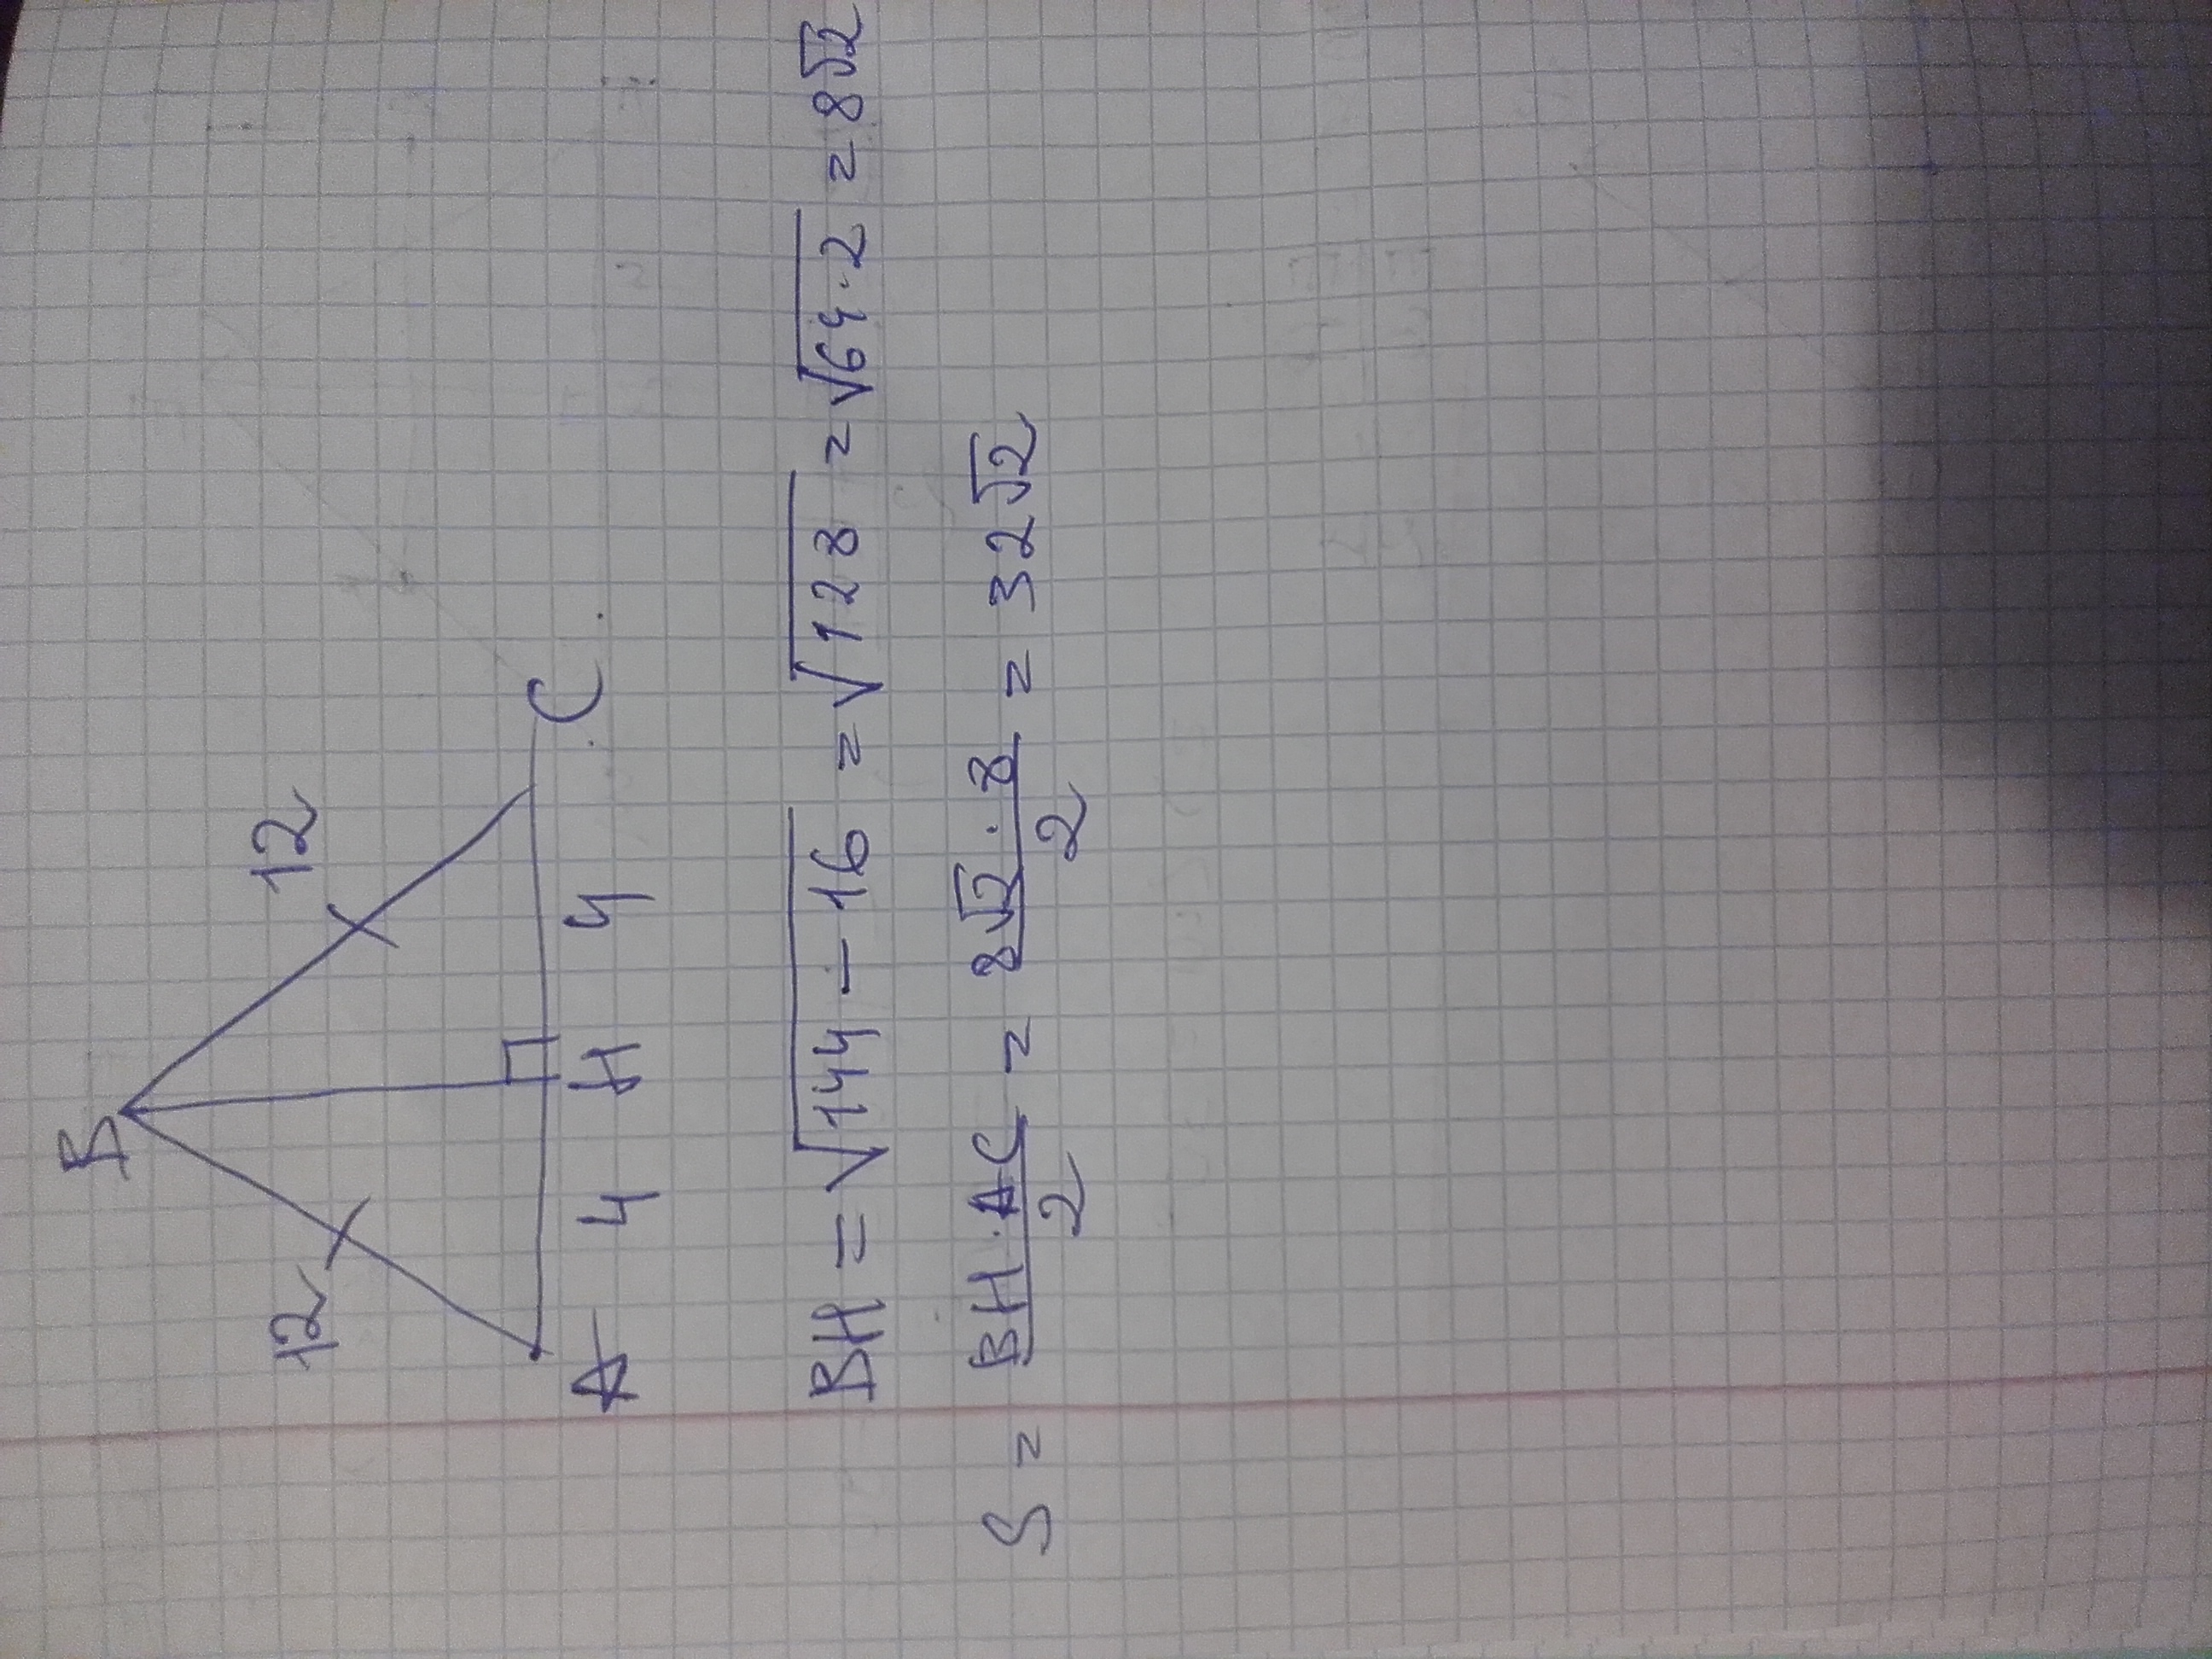 B
12 12
A 4 H 4 C
BH = √144 - 16 = √128 = √64·2 = 8√2
S = BH·AC/2 = 8√2·8/2 = 32√2